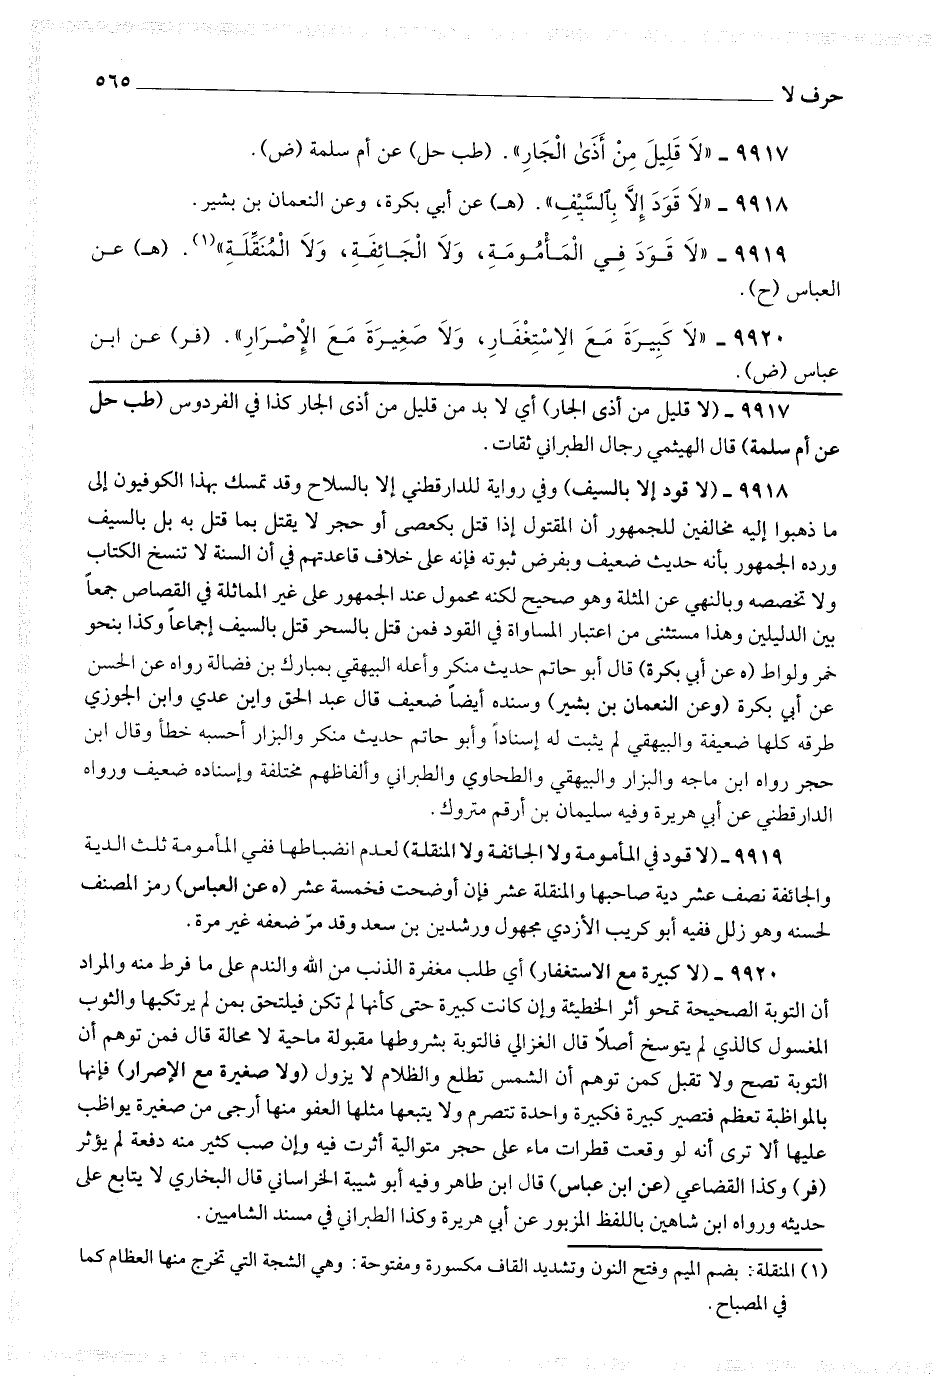 حرف لا ٥٦٥
٩٩١٧ ـ «لَا قَلِيلَ مِنْ أَذَىٰ الْجَارِ». (طب حل) عن أم سلمة (ض).
٩٩١٨ ـ «لَا قَوَدَ إِلَّا بِٱلسَّيْفِ». (هـ) عن أبي بكرة، وعن النعمان بن بشير.
٩٩١٩ ـ «لَا قَوَدَ فِي الْمَأْمُومَةِ، وَلَا الْجَائِفَةِ، وَلَا الْمُنَقِّلَةِ»(١). (هـ) عن
العباس (ح).
٩٩٢٠ ـ «لَا كَبِيرَةَ مَعَ الِاسْتِغْفَارِ، وَلَا صَغِيرَةَ مَعَ الْإِصْرَارِ». (فر) عن ابن
عباس (ض).
٩٩١٧ ـ (لا قليل من أذى الجار) أي لا بد من قليل من أذى الجار كذا في الفردوس (طب حل
عن أم سلمة) قال الهيثمي رجال الطبراني ثقات.
٩٩١٨ ـ (لا قود إلا بالسيف) وفي رواية للدارقطني إلا بالسلاح وقد تمسك بهذا الكوفيون إلى
ما ذهبوا إليه مخالفين للجمهور أن المقتول إذا قتل بكعصى أو حجر لا يقتل بما قتل به بل بالسيف
ورده الجمهور بأنه حديث ضعيف وبفرض ثبوته فإنه على خلاف قاعدتهم في أن السنة لا تنسخ الكتاب
ولا تخصصه وبالنهي عن المثلة وهو صحيح لكنه محمول عند الجمهور على غير المماثلة في القصاص جمعاً
بين الدليلين وهذا مستثنى من اعتبار المساواة في القود فمن قتل بالسحر قتل بالسيف إجماعاً وكذا بنحو
خمر ولواط (ه عن أبي بكرة) قال أبو حاتم حديث منكر وأعله البيهقي بمبارك بن فضالة رواه عن الحسن
عن أبي بكرة (وعن النعمان بن بشير) وسنده أيضاً ضعيف قال عبد الحق وابن عدي وابن الجوزي
طرقه كلها ضعيفة والبيهقي لم يثبت له إسناداً وأبو حاتم حديث منكر والبزار أحسبه خطأ وقال ابن
حجر رواه ابن ماجه والبزار والبيهقي والطحاوي والطبراني وألفاظهم مختلفة وإسناده ضعيف ورواه
الدارقطني عن أبي هريرة وفيه سليمان بن أرقم متروك.
٩٩١٩ ـ (لا قود في المأمومة ولا الجائفة ولا المنقلة) لعدم انضباطها ففي المأمومة ثلث الدية
والجائفة نصف عشر دية صاحبها والمنقلة عشر فإن أوضحت فخمسة عشر (ه عن العباس) رمز المصنف
لحسنه وهو زلل ففيه أبو كريب الأزدي مجهول ورشدين بن سعد وقد مرّ ضعفه غير مرة.
٩٩٢٠ ـ (لا كبيرة مع الاستغفار) أي طلب مغفرة الذنب من الله والندم على ما فرط منه والمراد
أن التوبة الصحيحة تمحو أثر الخطيئة وإن كانت كبيرة حتى كأنها لم تكن فيلتحق بمن لم يرتكبها والثوب
المغسول كالذي لم يتوسخ أصلاً قال الغزالي فالتوبة بشروطها مقبولة ماحية لا محالة قال فمن توهم أن
التوبة تصح ولا تقبل كمن توهم أن الشمس تطلع والظلام لا يزول (ولا صغيرة مع الإصرار) فإنها
بالمواظبة تعظم فتصير كبيرة فكبيرة واحدة تتصرم ولا يتبعها مثلها العفو منها أرجى من صغيرة يواظب
عليها ألا ترى أنه لو وقعت قطرات ماء على حجر متوالية أثرت فيه وإن صب كثير منه دفعة لم يؤثر
(فر) وكذا القضاعي (عن ابن عباس) قال ابن طاهر وفيه أبو شيبة الخراساني قال البخاري لا يتابع على
حديثه ورواه ابن شاهين باللفظ المزبور عن أبي هريرة وكذا الطبراني في مسند الشاميين.
(١) المنقلة: بضم الميم وفتح النون وتشديد القاف مكسورة ومفتوحة: وهي الشجة التي تخرج منها العظام كما
في المصباح.